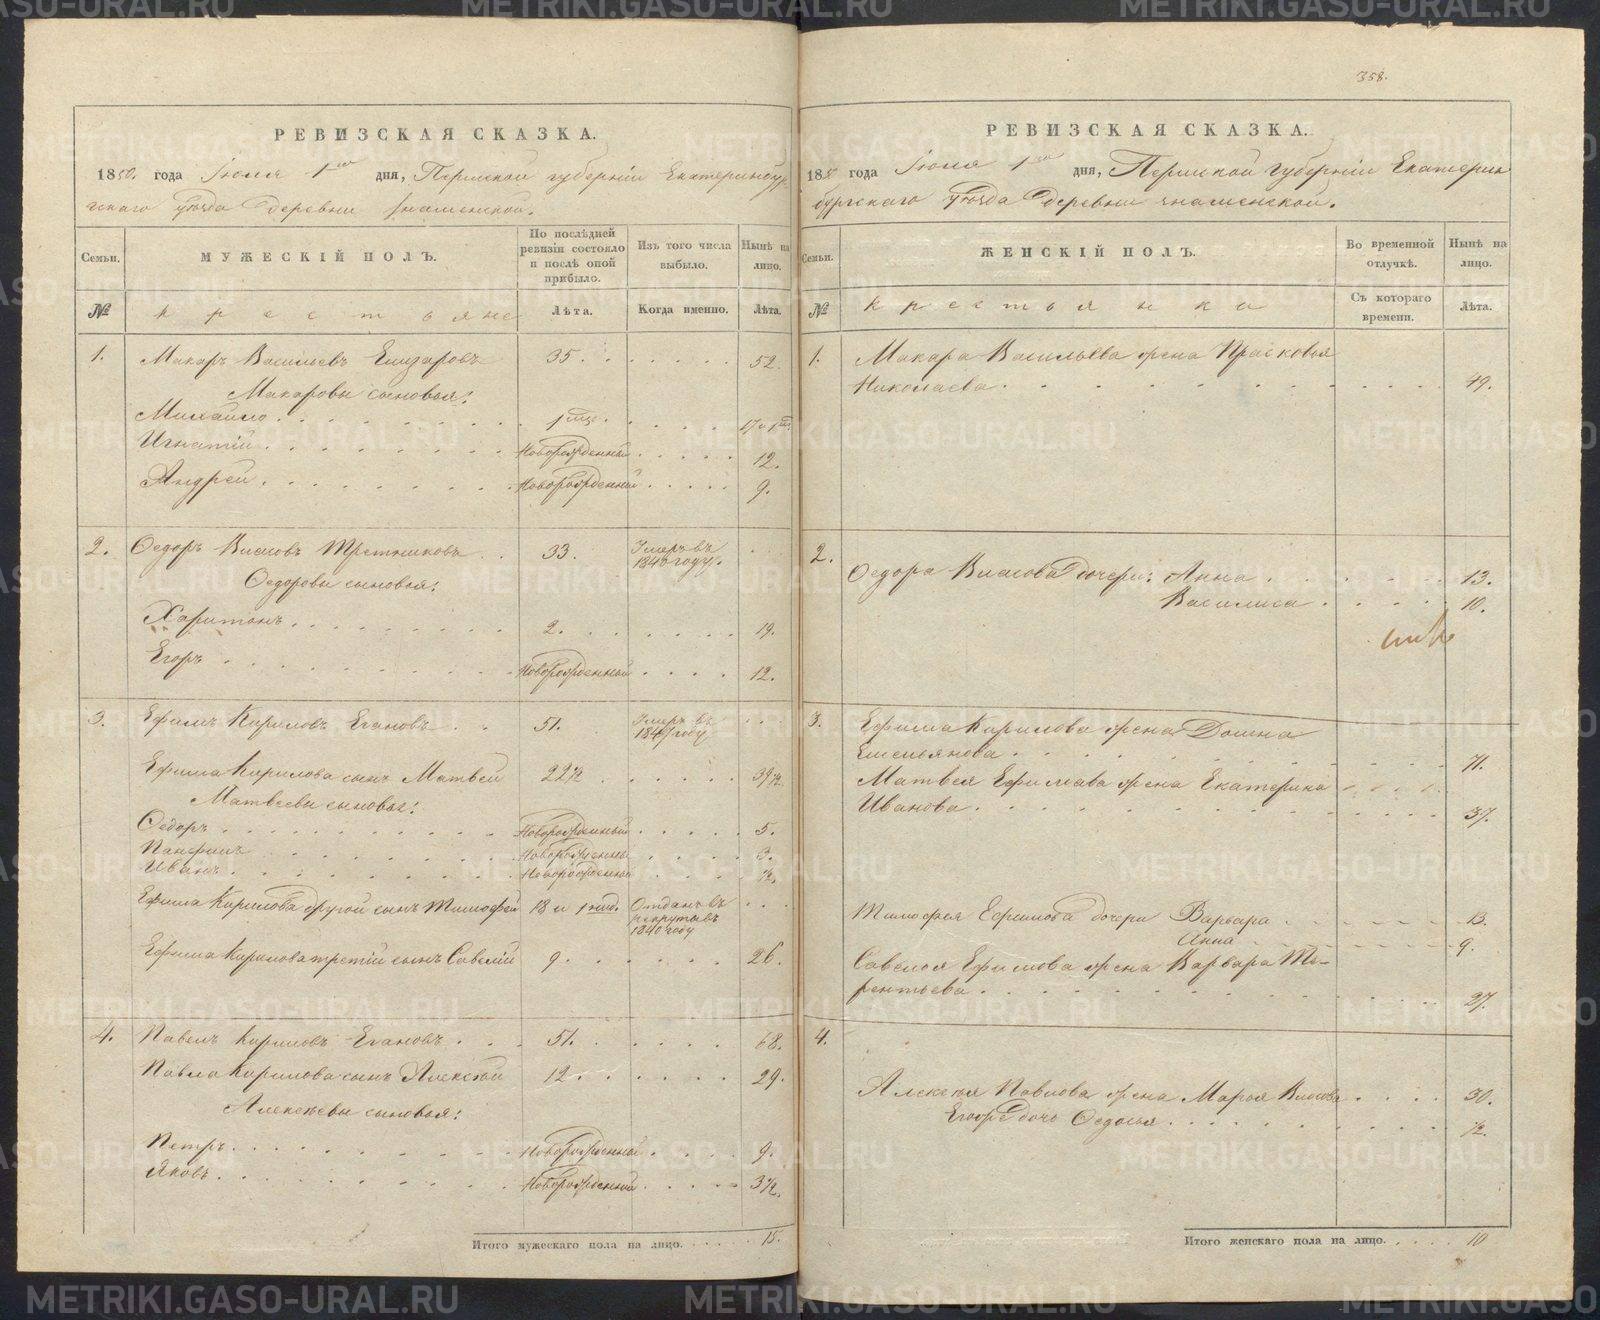 358.
РЕВИЗСКАЯ СКАЗКА.
1850. года Іюля 1го дня, Пермской губерніи Екатеринбур-
гскаго уѣзда деревни Знаменской.
Семьи.
МУЖЕСКІЙ ПОЛЪ.
По послѣдней ревизіи состояло и послѣ оной прибыло.
Изъ того числа выбыло.
Нынѣ на лицо.
№
крестьяне
Лѣта.
Когда именно.
Лѣта.
1. Макаръ Васильевъ Елизаровъ 35. 52.
Макаровы сыновья:
Михайло 1 мѣс. 17 и 1 м.
Игнатій Новорожденный 12.
Андрей Новорожденный 9.
2. Ѳедоръ Власовъ Третьяковъ 33. Умеръ въ 1840 году.
Ѳедоровы сыновья:
Харитонъ 2. 19.
Егоръ Новорожденный 12.
3. Ефимъ Кириловъ Егановъ 51. Умеръ въ 1847 году
Ефима Кирилова сынъ Матвей 22½ 39½
Матвеевы сыновья:
Ѳедоръ Новорожденный 5.
Панфилъ Новорожденный 3.
Иванъ Новорожденный ½.
Ефима Кирилова другой сынъ Тимофей 18 и 1 мѣс. Отданъ въ рекруты въ 1840 году
Ефима Кирилова третій сынъ Савелій 9. 26.
4. Павелъ Кириловъ Егановъ 51. 68.
Павла Кирилова сынъ Алексѣй 12. 29.
Алексѣевы сыновья:
Петръ Новорожденный 9.
Яковъ Новорожденный 3½.
Итого мужескаго пола на лицо. 15.
РЕВИЗСКАЯ СКАЗКА.
1850 года Іюля 1го дня, Пермской губерніи Екатерин
бургскаго уѣзда деревни Знаменской.
Семьи.
ЖЕНСКІЙ ПОЛЪ.
Во временной отлучкѣ.
Нынѣ на лицо.
№
крестьянка
Съ котораго времени.
Лѣта.
1. Макара Васильева жена Прасковья
Николаева 49.
2. Ѳедора Власова дочери: Анна 13.
Василиса 10.
3. Ефима Кирилова жена Домна
Емельянова 71.
Матвея Ефимова жена Екатерина
Иванова 37.
Тимофея Ефимова дочери Варвара 13.
Анна 9.
Савелья Ефимова жена Варвара Те-
рентьева 27.
4.
Алексѣя Павлова жена Марья Власова 30.
Его дочь Ѳедосья ½.
Итого женскаго пола на лицо. 10
METRIKI.GASO-URAL.RU